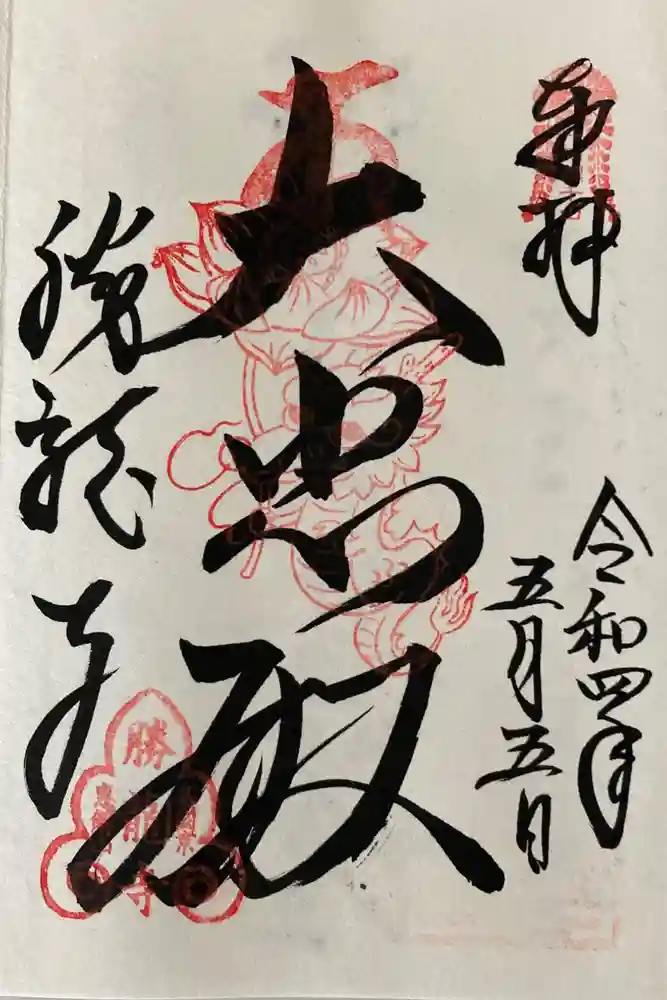 奉拝
令和四年
五月五日
大悲殿
勝龍寺
勝龍寺